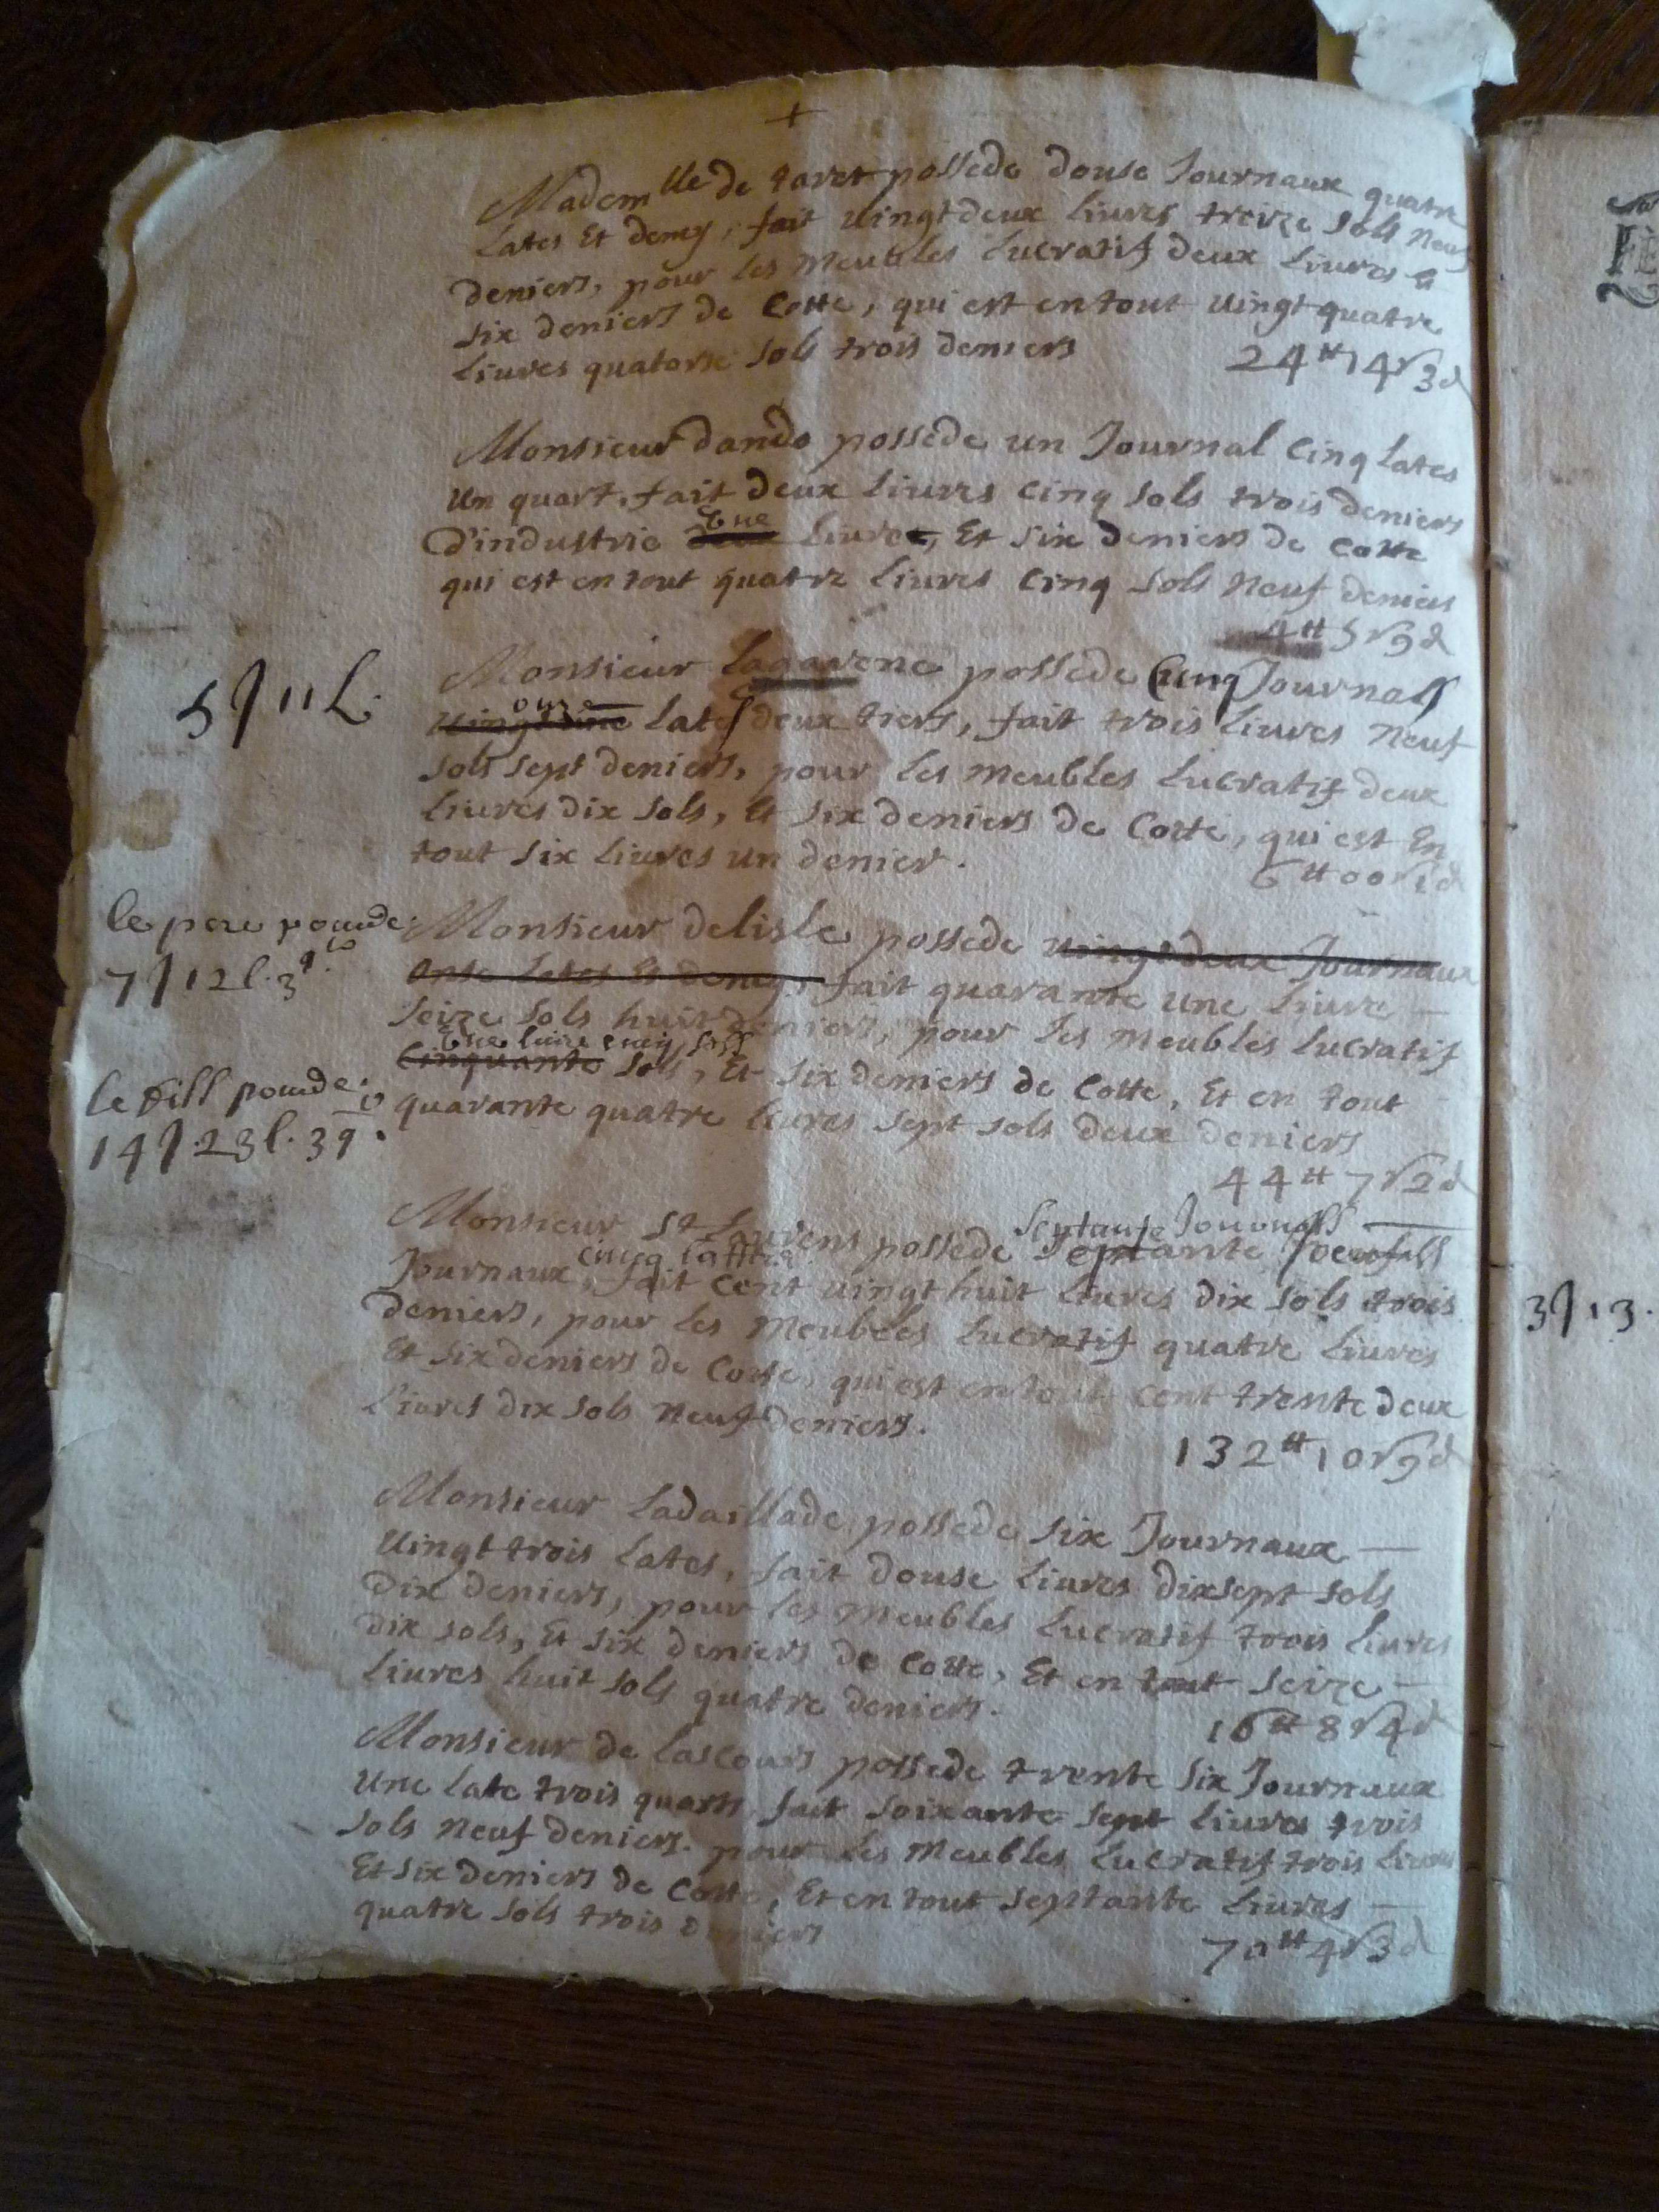 +
Madem lle de taret possede douse Journaux quatre
Lates Et demy, fait uingt deux Liures treize sols neuf
deniers, pour les meubles Lucratif deux Liures &
six deniers de Cotte, qui est en tout uingt quatre
Liures quatorse sols trois deniers
24 tt 14 s 3 d
Monsieur dando possede un Journal Cinq Lates
un quart, fait deux Liures cinq sols trois deniers
Vne
D'industrie deux Liures, Et six deniers de cotte
qui est en tout quatre Liures cinq sols neuf deniers
4 tt 5 s 9 d
5 J 11 L.
Monsieur Lagarene possede Cinq Journals
onze
Lates deux tiers, fait trois Liures neuf
sols sept deniers, pour les meubles Lucratif deux
Liures dix sols, Et six deniers de Cotte, qui est En
tout six Liures un denier.
6 tt 00 s 1 d
le pere possede
7 J 12 l. 3 q.
Monsieur delisle possede uingt deux Journaux
onse Lates Et demy, fait quarante une Liure
seize sols huit deniers, pour les meubles Lucratif
Vne liure cinq sols
Cinquante sols, Et six deniers de Cotte, Et en tout
le fill possede
14 J. 23 l. 3 q.
quarante quatre Liures sept sols deux deniers
44 tt 7 s 2 d
Septante Journalls
Monsieur St Laurens possede septante
cinq lattes
Journaux, fait cent uingt huit Liures dix sols trois
deniers, pour les meubles Lucratif quatre Liures
Et six deniers de Cotte, qui est en tout cent trente deux
Liures dix sols neuf deniers.
132 tt 10 s 9 d
Monsieur Ladaillade possede six Journaux
uingt trois Lates, fait douse Liures dixsept sols
dix deniers, pour les meubles Lucratif trois Liures
dix sols, Et six deniers de Cotte, Et en tout seize
Liures huit sols quatre deniers.
16 tt 8 s 4 d
Monsieur de Lascours possede trente six Journaux
une Late trois quarts, fait soixante sept Liures trois
sols neuf deniers. pour les meubles Lucratif trois Liures
Et six deniers de Cotte, Et en tout septante Liures
quatre sols trois deniers
70 tt 4 s 3 d
3 J 13.